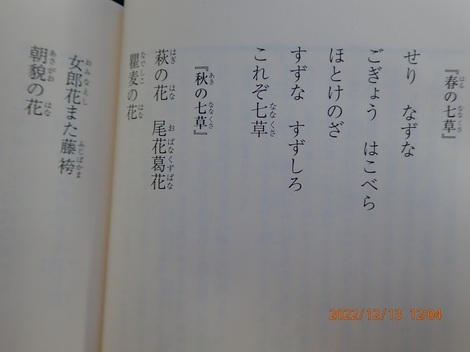 『春の七草』
せり　なずな
ごぎょう　はこべら
ほとけのざ
すずな　すずしろ
これぞ七草
『秋の七草』
萩の花　尾花葛花
瞿麦の花
女郎花また藤袴
朝貌の花
2022/12/13 12:04